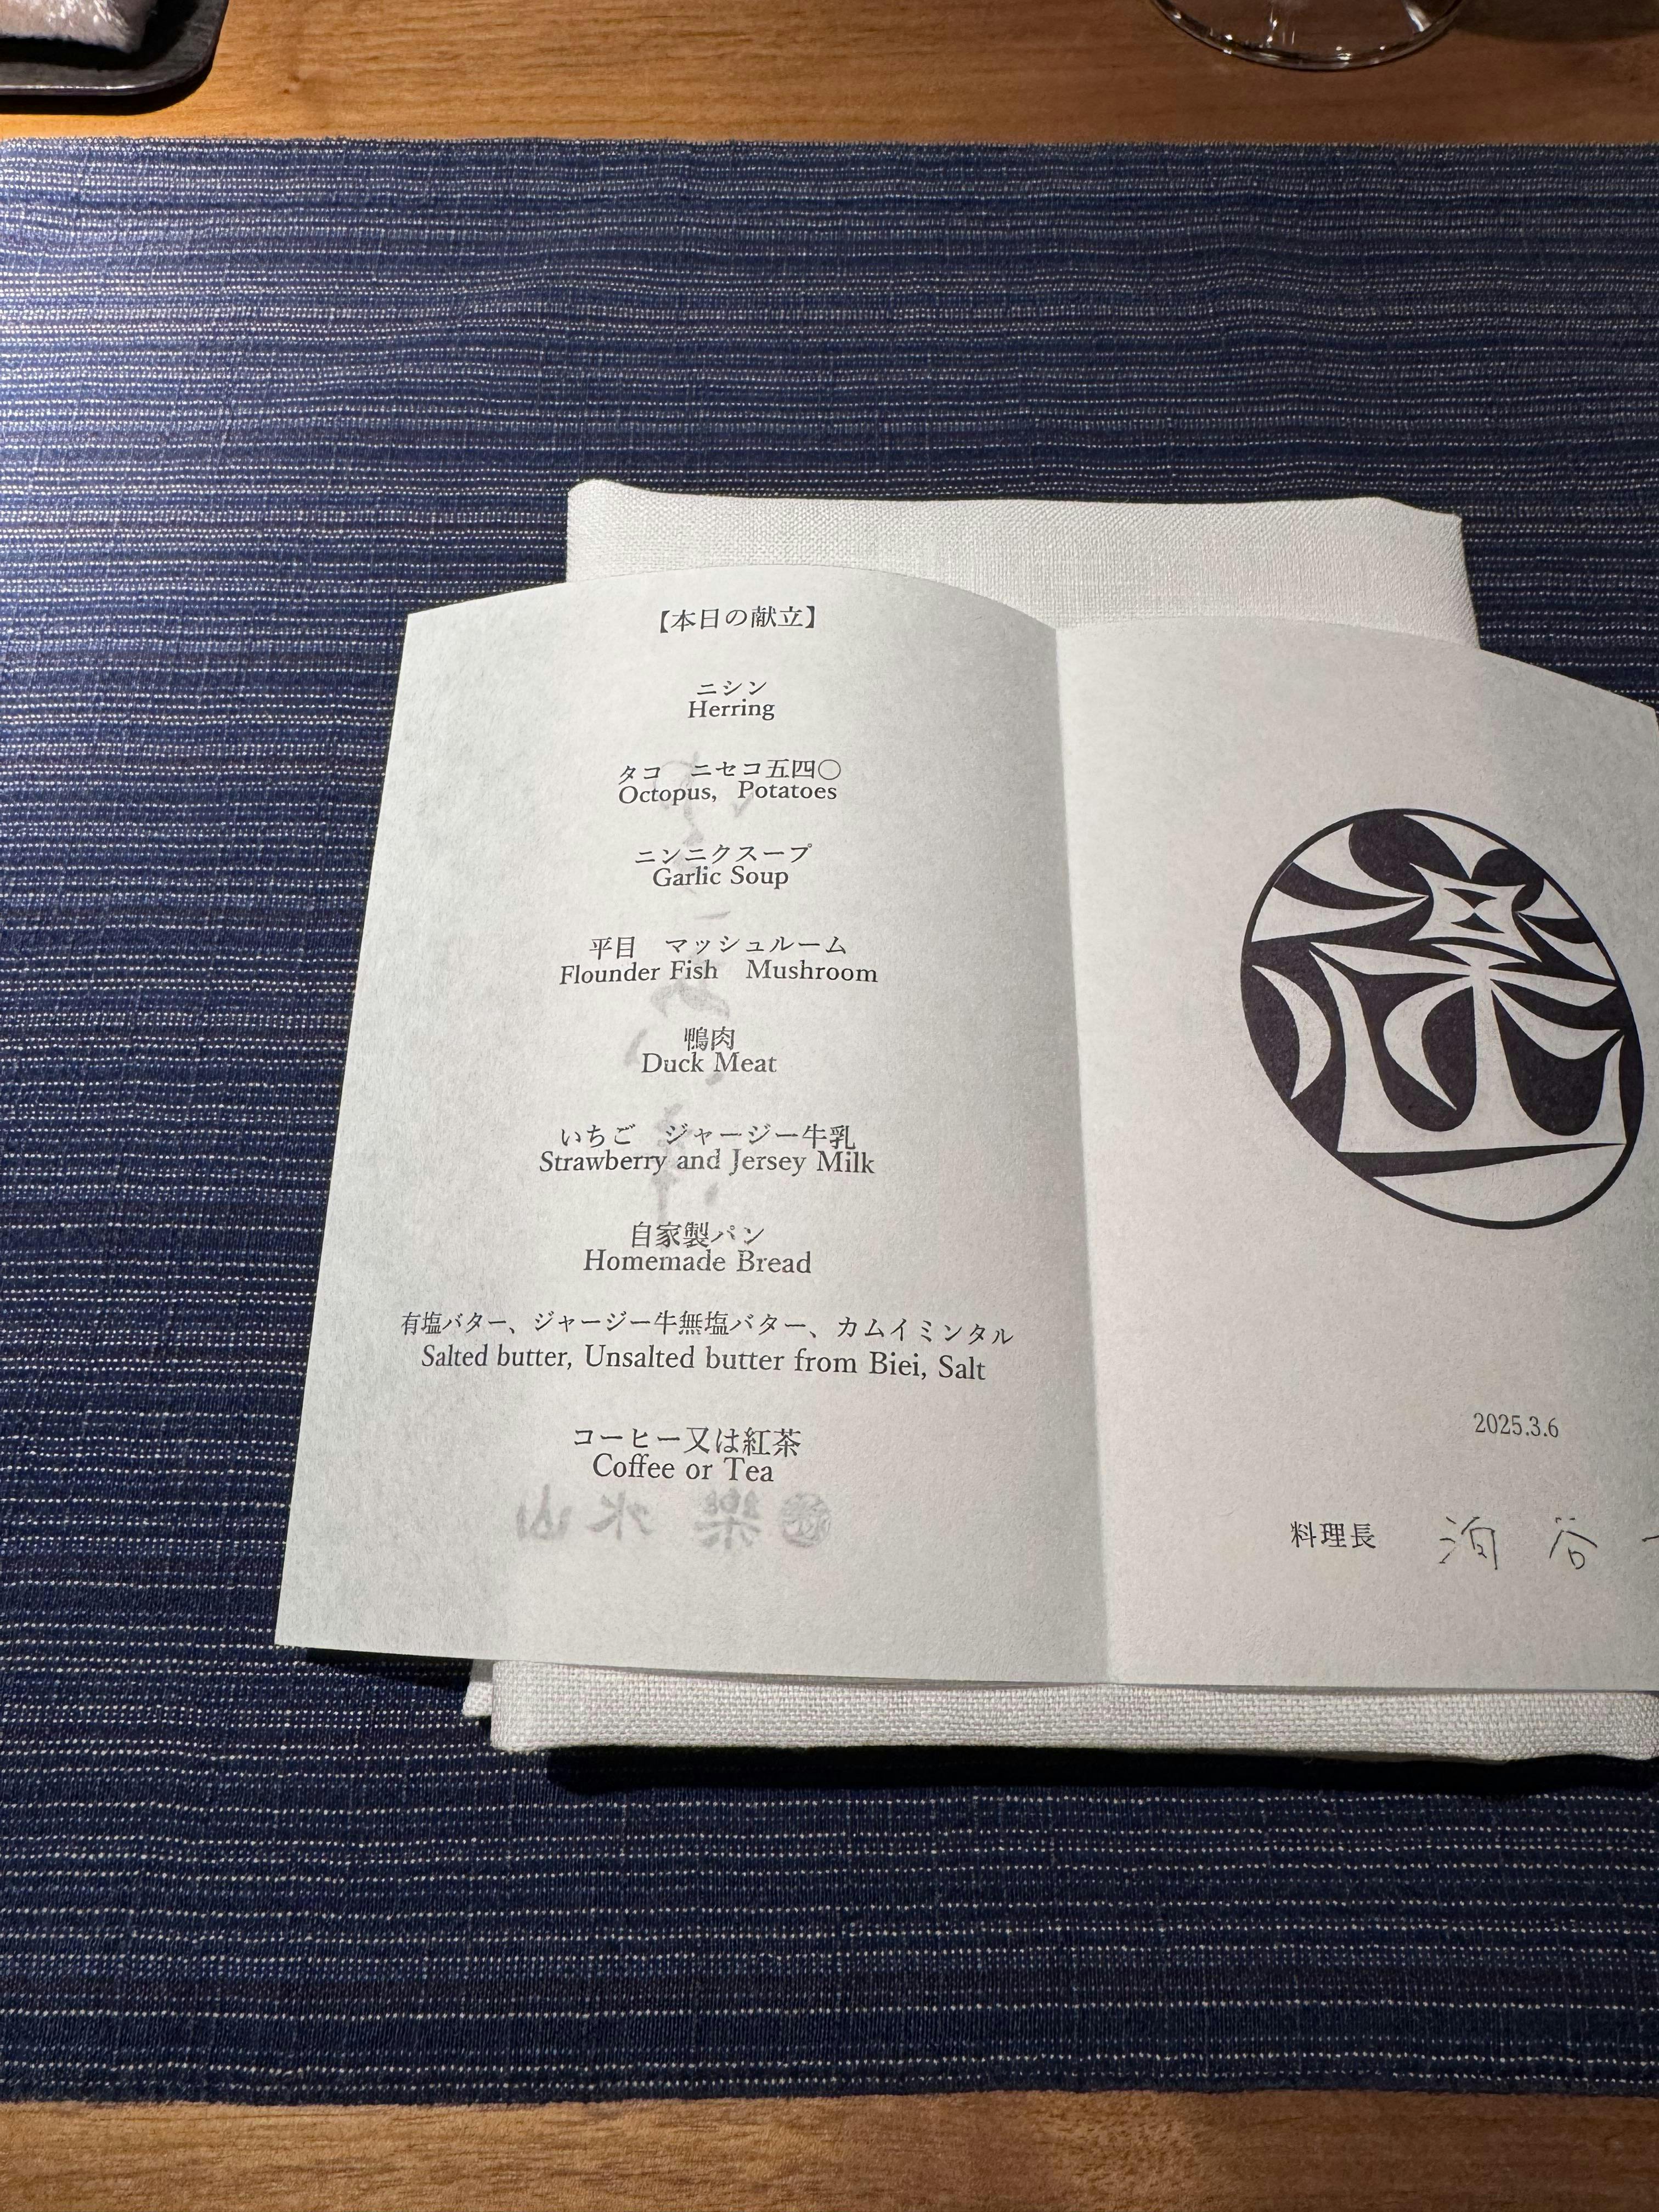 【本日の献立】
ニシン
Herring
タコ　ニセコ五四〇
Octopus, Potatoes
ニンニクスープ
Garlic Soup
平目　マッシュルーム
Flounder Fish　Mushroom
鴨肉
Duck Meat
いちご　ジャージー牛乳
Strawberry and Jersey Milk
自家製パン
Homemade Bread
有塩バター、ジャージー牛無塩バター、カムイミンタル
Salted butter, Unsalted butter from Biei, Salt
コーヒー又は紅茶
Coffee or Tea
楽 水山
2025.3.6
料理長 谷